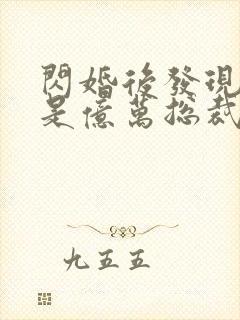 閃婚後發現
是億萬總裁
九五五